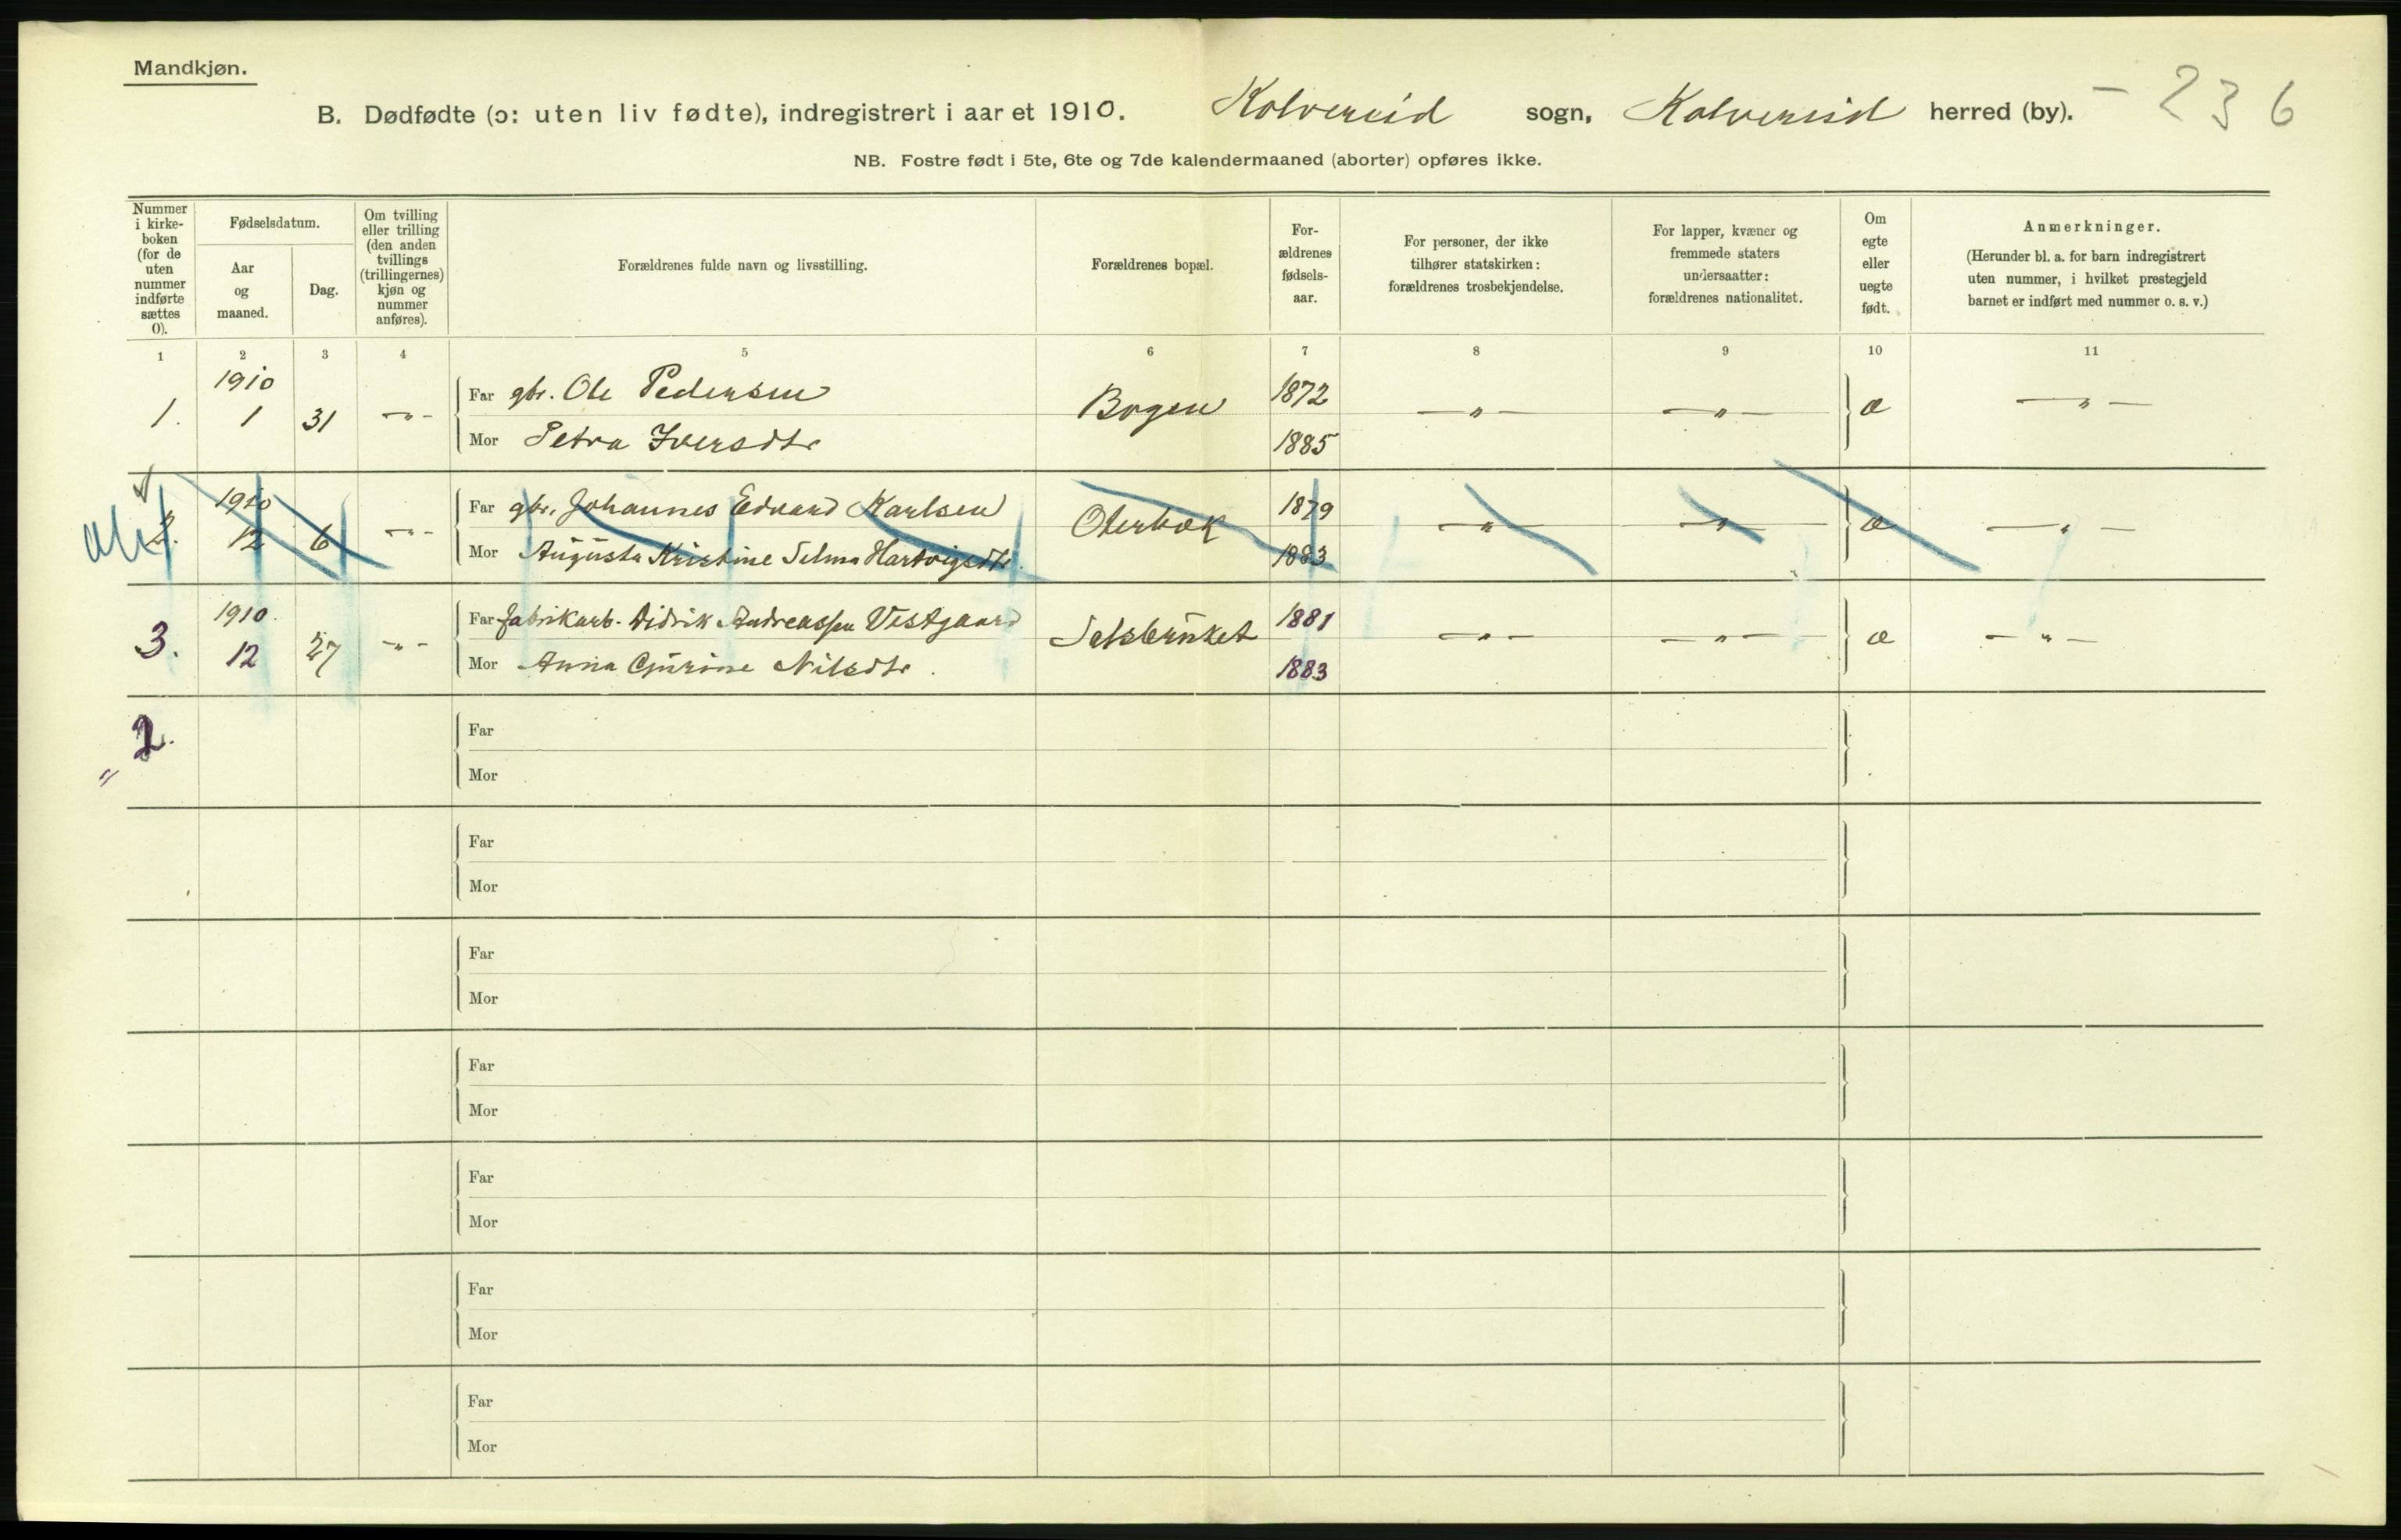 Mandkjøn.
B. Dødfødte (ɔ: uten liv fødte), indregistrert i aaret 1910. Kolvereid sogn, Kolvereid herred (by). – 236
NB. Fostre født i 5te, 6te og 7de kalendermaaned (aborter) opføres ikke.
Nummer i kirke-boken (for de uten nummer indførte sættes 0).
Fødselsdatum.
Aar og maaned.
Dag.
Om tvilling eller trilling (den anden tvillings (trillingernes) kjøn og nummer anføres).
Forældrenes fulde navn og livsstilling.
Forældrenes bopæl.
For-ældrenes fødsels-aar.
For personer, der ikke tilhører statskirken: forældrenes trosbekjendelse.
For lapper, kvæner og fremmede staters undersaatter: forældrenes nationalitet.
Om egte eller uegte født.
Anmerkninger.
(Herunder bl. a. for barn indregistrert uten nummer, i hvilket prestegjeld barnet er indført med nummer o. s. v.)
1 2 3 4 5 6 7 8 9 10 11
1910
1. 1 31 –"– Far gbr. Ole Pedersen Bogen 1872 –"– –"– æ –"–
Mor Petra Iversdtr 1885
1910
2. 12 6 –"– Far gbr. Johannes Edvard Karlsen Oterbæk 1879 –"– –"– æ –"–
Mor Augusta Kristine Selma Hartvigsdtr. 1883
1910.
3. 12 27 –"– Far fabrikarb. Didrik Andreassen Vestgaard Salsbruket 1881 –"– –"– æ –"–
Mor Anna Gjurine Nilsdtr. 1883
2.
"
Far
Mor
Far
Mor
Far
Mor
Far
Mor
Far
Mor
Far
Mor
Far
Mor